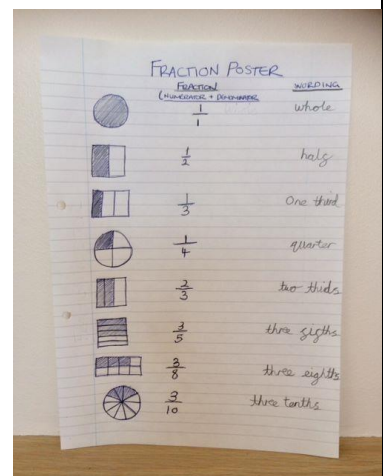 FRACTION POSTER
FRACTION WORDING
(NUMERATOR + DENOMINATOR
1/1 whole
1/2 half
1/3 One third
1/4 quarter
2/3 two thids
3/5 three
3/8 three eighths
3/10 three tenths